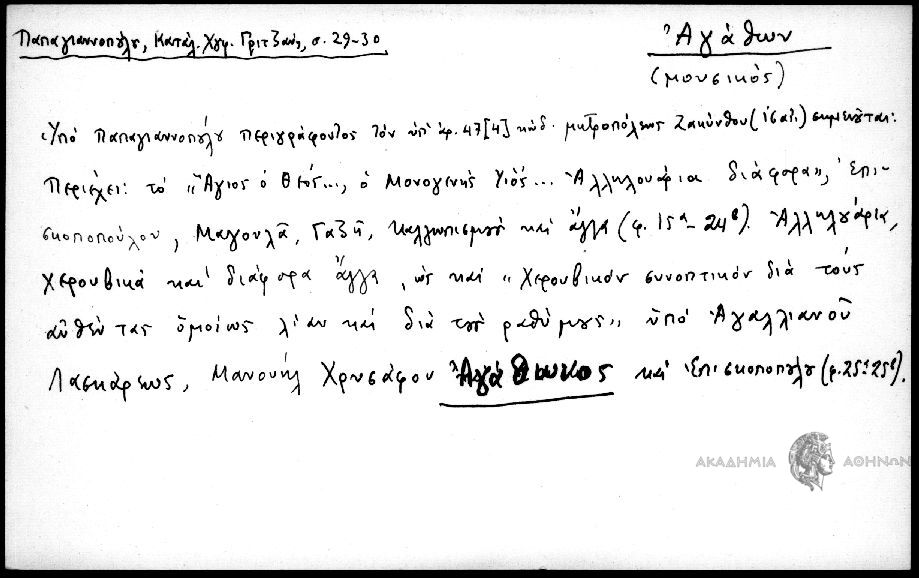 Παπαγιαννοπούλου, Κατάλ. Χγφ. Γριτζάνη, σ. 29-30
Ἀγάθων
(μουσικός)
Ὑπό Παπαγιαννοπούλου περιγράφοντος τόν ὑπ' ἀρ. 47[4] κώδ. μητροπόλεως Ζακύνθου (ις΄ αἰ.) σημειοῦται:
Περιέχει: τό "Ἅγιος ὁ Θεός..., ὁ Μονογενής Υἱός... Ἀλληλουάρια διάφορα", Ἐπι-
σκοποπούλου, Μαγουλᾶ, Γαζῆ, καλλωπισμούς καί ἄλλα (φ. 15α - 24β). Ἀλληλουάρια,
χερουβικά καί διάφορα ἄλλα, ὡς καί "Χερουβικόν συνοπτικόν διά τούς
αὐθέντας ὁμοίως λίαν καί διά τούς ραθύμους" ὑπό Ἀγαλλιανοῦ
Λασκάρεως, Μανουήλ Χρυσάφου Ἀγάθωνος καί Ἐπισκοποπούλου (φ. 25α-25β).
ΑΚΑΔΗΜΙΑ ΑΘΗΝΩΝ